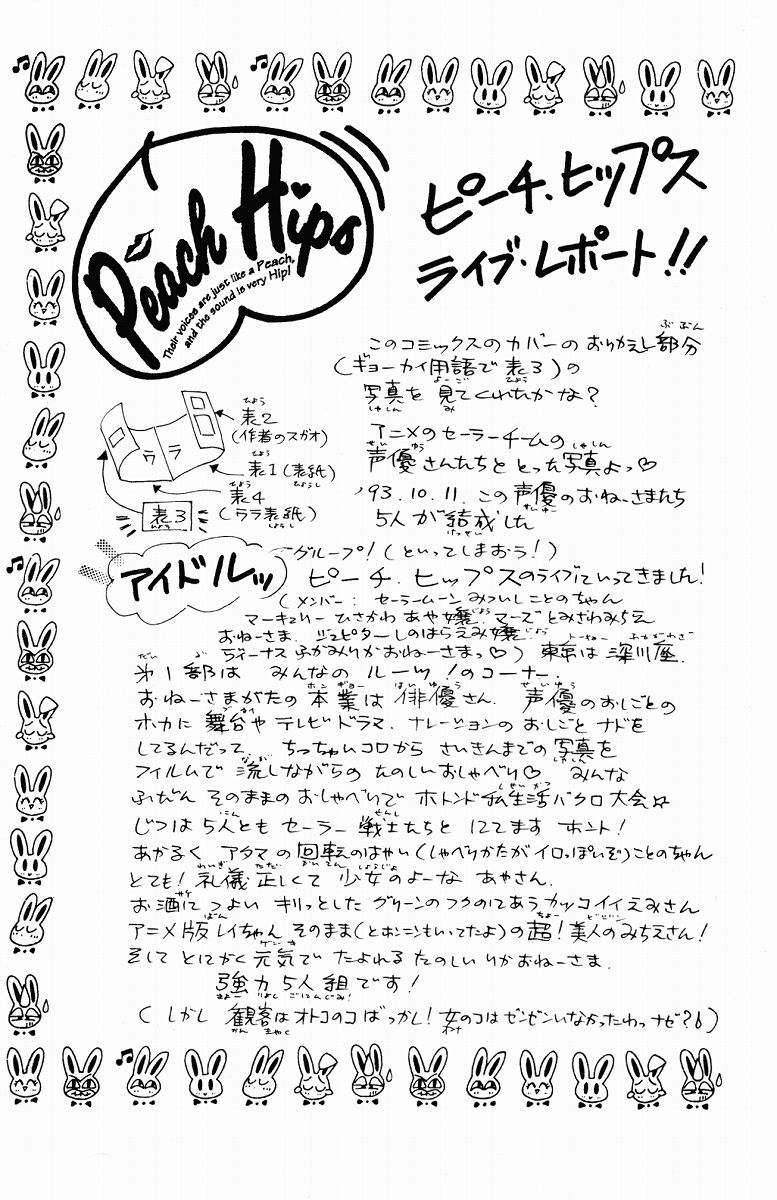 Peach Hips
Their voices are just like a Peach,
and the sound is very Hip!
ピーチ.ヒップス
ライブ・レポート!!
このコミックスのカバーの おりかえし部分
(ギョーカイ用語で 表3)の
写真を 見てくれたかな?
アニメのセーラーチームの
声優さんたちと とった写真よっ♡
'93.10.11. この声優のおねーさまたち
5人が結成した
アイドルッ
グループ!(といってしまおう!)
ピーチ.ヒップスのライブにいってきました!
(メンバー: セーラームーン みついしことのちゃん
マーキュリー ひさかわ あや嬢. マーズ とみざわみちえ
おねーさま. ジュピター しのはらえみ嬢.
ヴィーナス ふかみりかおねーさまっ♡) 東京は 深川座.
第1部は みんなの ルーツ!のコーナー.
おねーさまがたの 本業は 俳優さん. 声優のおしごとの
ホカに 舞台や テレビドラマ. ナレーションの おしごと ナドを
してるんだって. ちっちゃいコロから さいきんまでの 写真を
フィルムで 流しながらの たのしいおしゃべり♡ みんな
ふだん そのままの おしゃべりで ホトンド 私生活バクロ大会☆
じつは 5人とも セーラー 戦士たちと にてます ホント!
あかるく アタマの 回転のはやい(しゃべりかたが イロっぽいぞ)ことのちゃん
とても! 礼儀 正しくて 少女のよーな あやさん.
お酒につよい キリっとした グリーンのフクのにあう カッコイイ えみさん
アニメ版 レイちゃん そのまま(とホンニンもいってたよ)の 超!美人のみちえさん!
そして とにかく 元気で たよれる たのしい りかおねーさま.
強力 5人組です!
(しかし 観客は オトコのコ ばっかし! 女のコは ゼンゼンいなかったわっ ナゼ?)
表2
(作者のスガオ)
表1(表紙)
表4
(ウラ表紙)
表3
ウラ